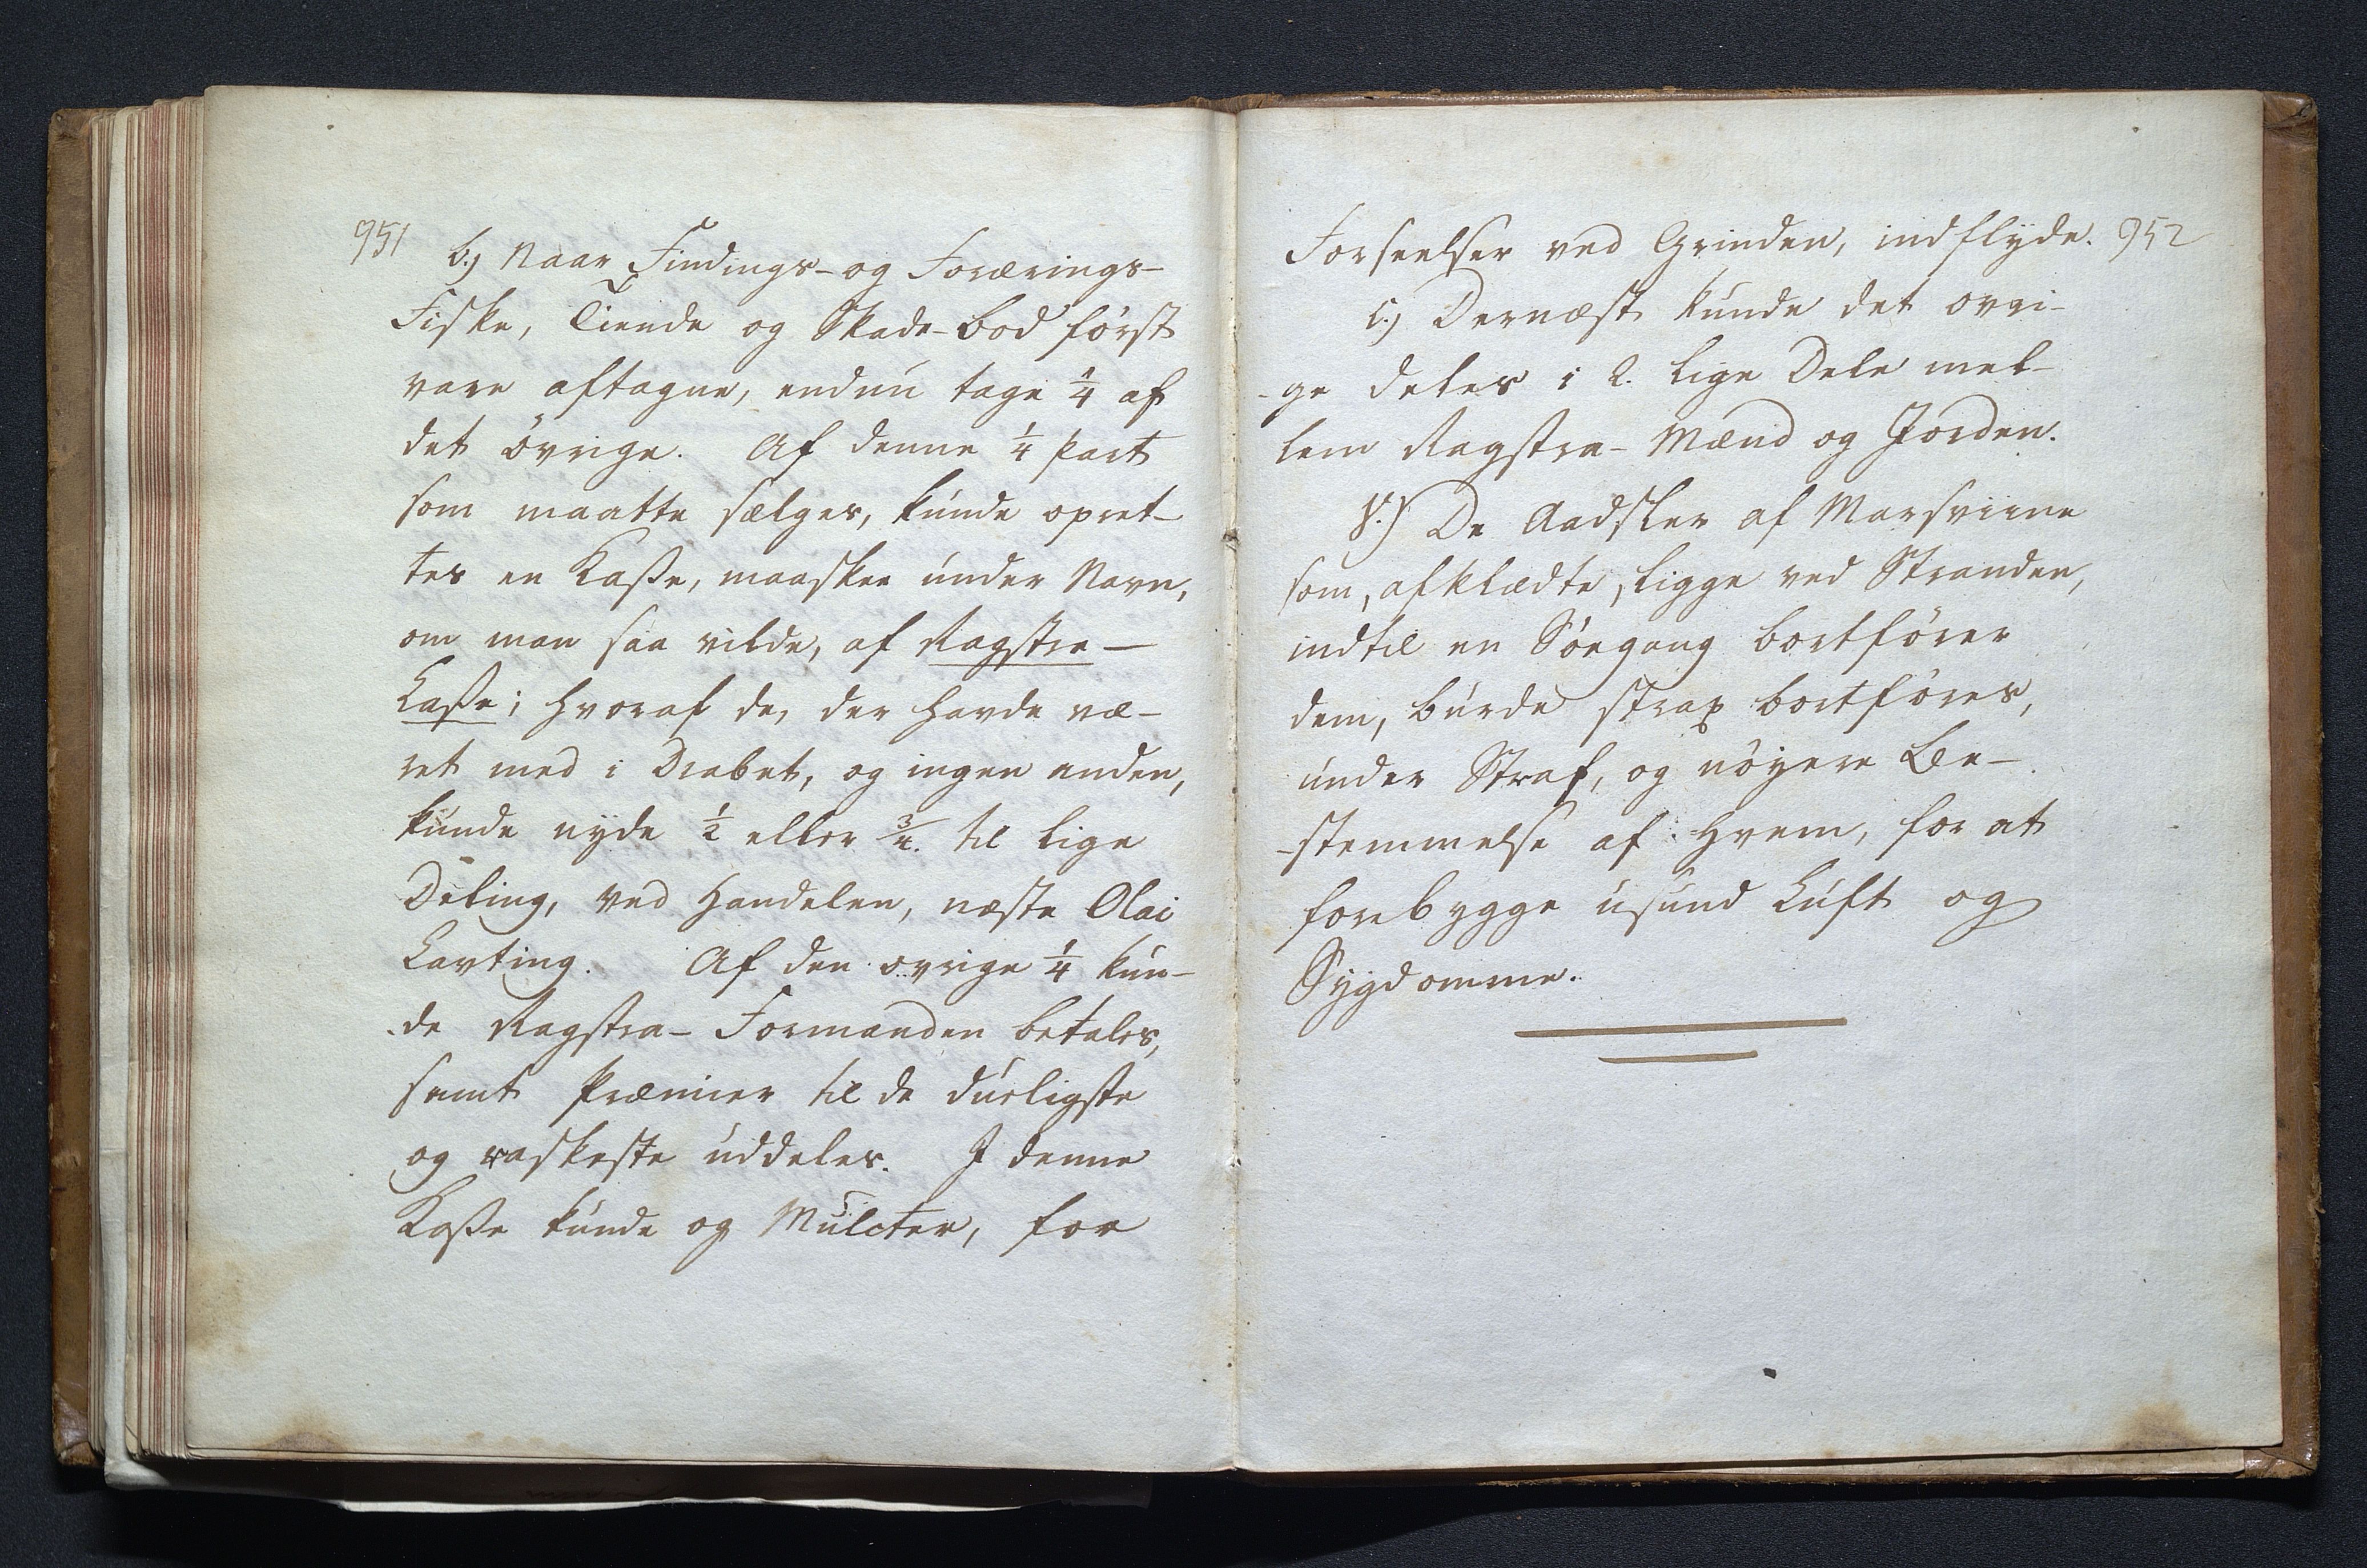 951
b.) Naar Findings- og Forærings-
Fiske, Tiende og Skade-bod først
vare aftagne, endnu tage ¼ af
det övrige. Af denne ¼ Part
som maatte sælges, kunde opret-
tes en Kaße, maaskee under Navn,
om man saa vilde, af Ragstra-
Caße; hvoraf de, der havde væ-
ret med i Drabet, og ingen anden,
kunde nyde ½ eller ¾. til lige
Deling, ved Handelen, næste Olai
Lavting. Af den ovrige ¼ kun-
de Ragstra-Formanden betales,
samt Præmier til de dueligste
og raskeste uddeles. I denne
Kaße kunde og Mulcter, for
952
Forseelser ved Grinden, indflyde.
c.) Dernæst kunde det ovri-
-ge deles i 2. lige Dele mel-
lem Ragstra-Mænd og Jorden.
8.) De Aadsler af Marsviine
som, afklædte, ligge ved Stranden,
indtil en Söegang bortförer
dem, burde strax bortföres,
under Straf, og nöyere Be-
-stemmelse af hvem, for at
forebygge usund Luft og
Sygdomme.